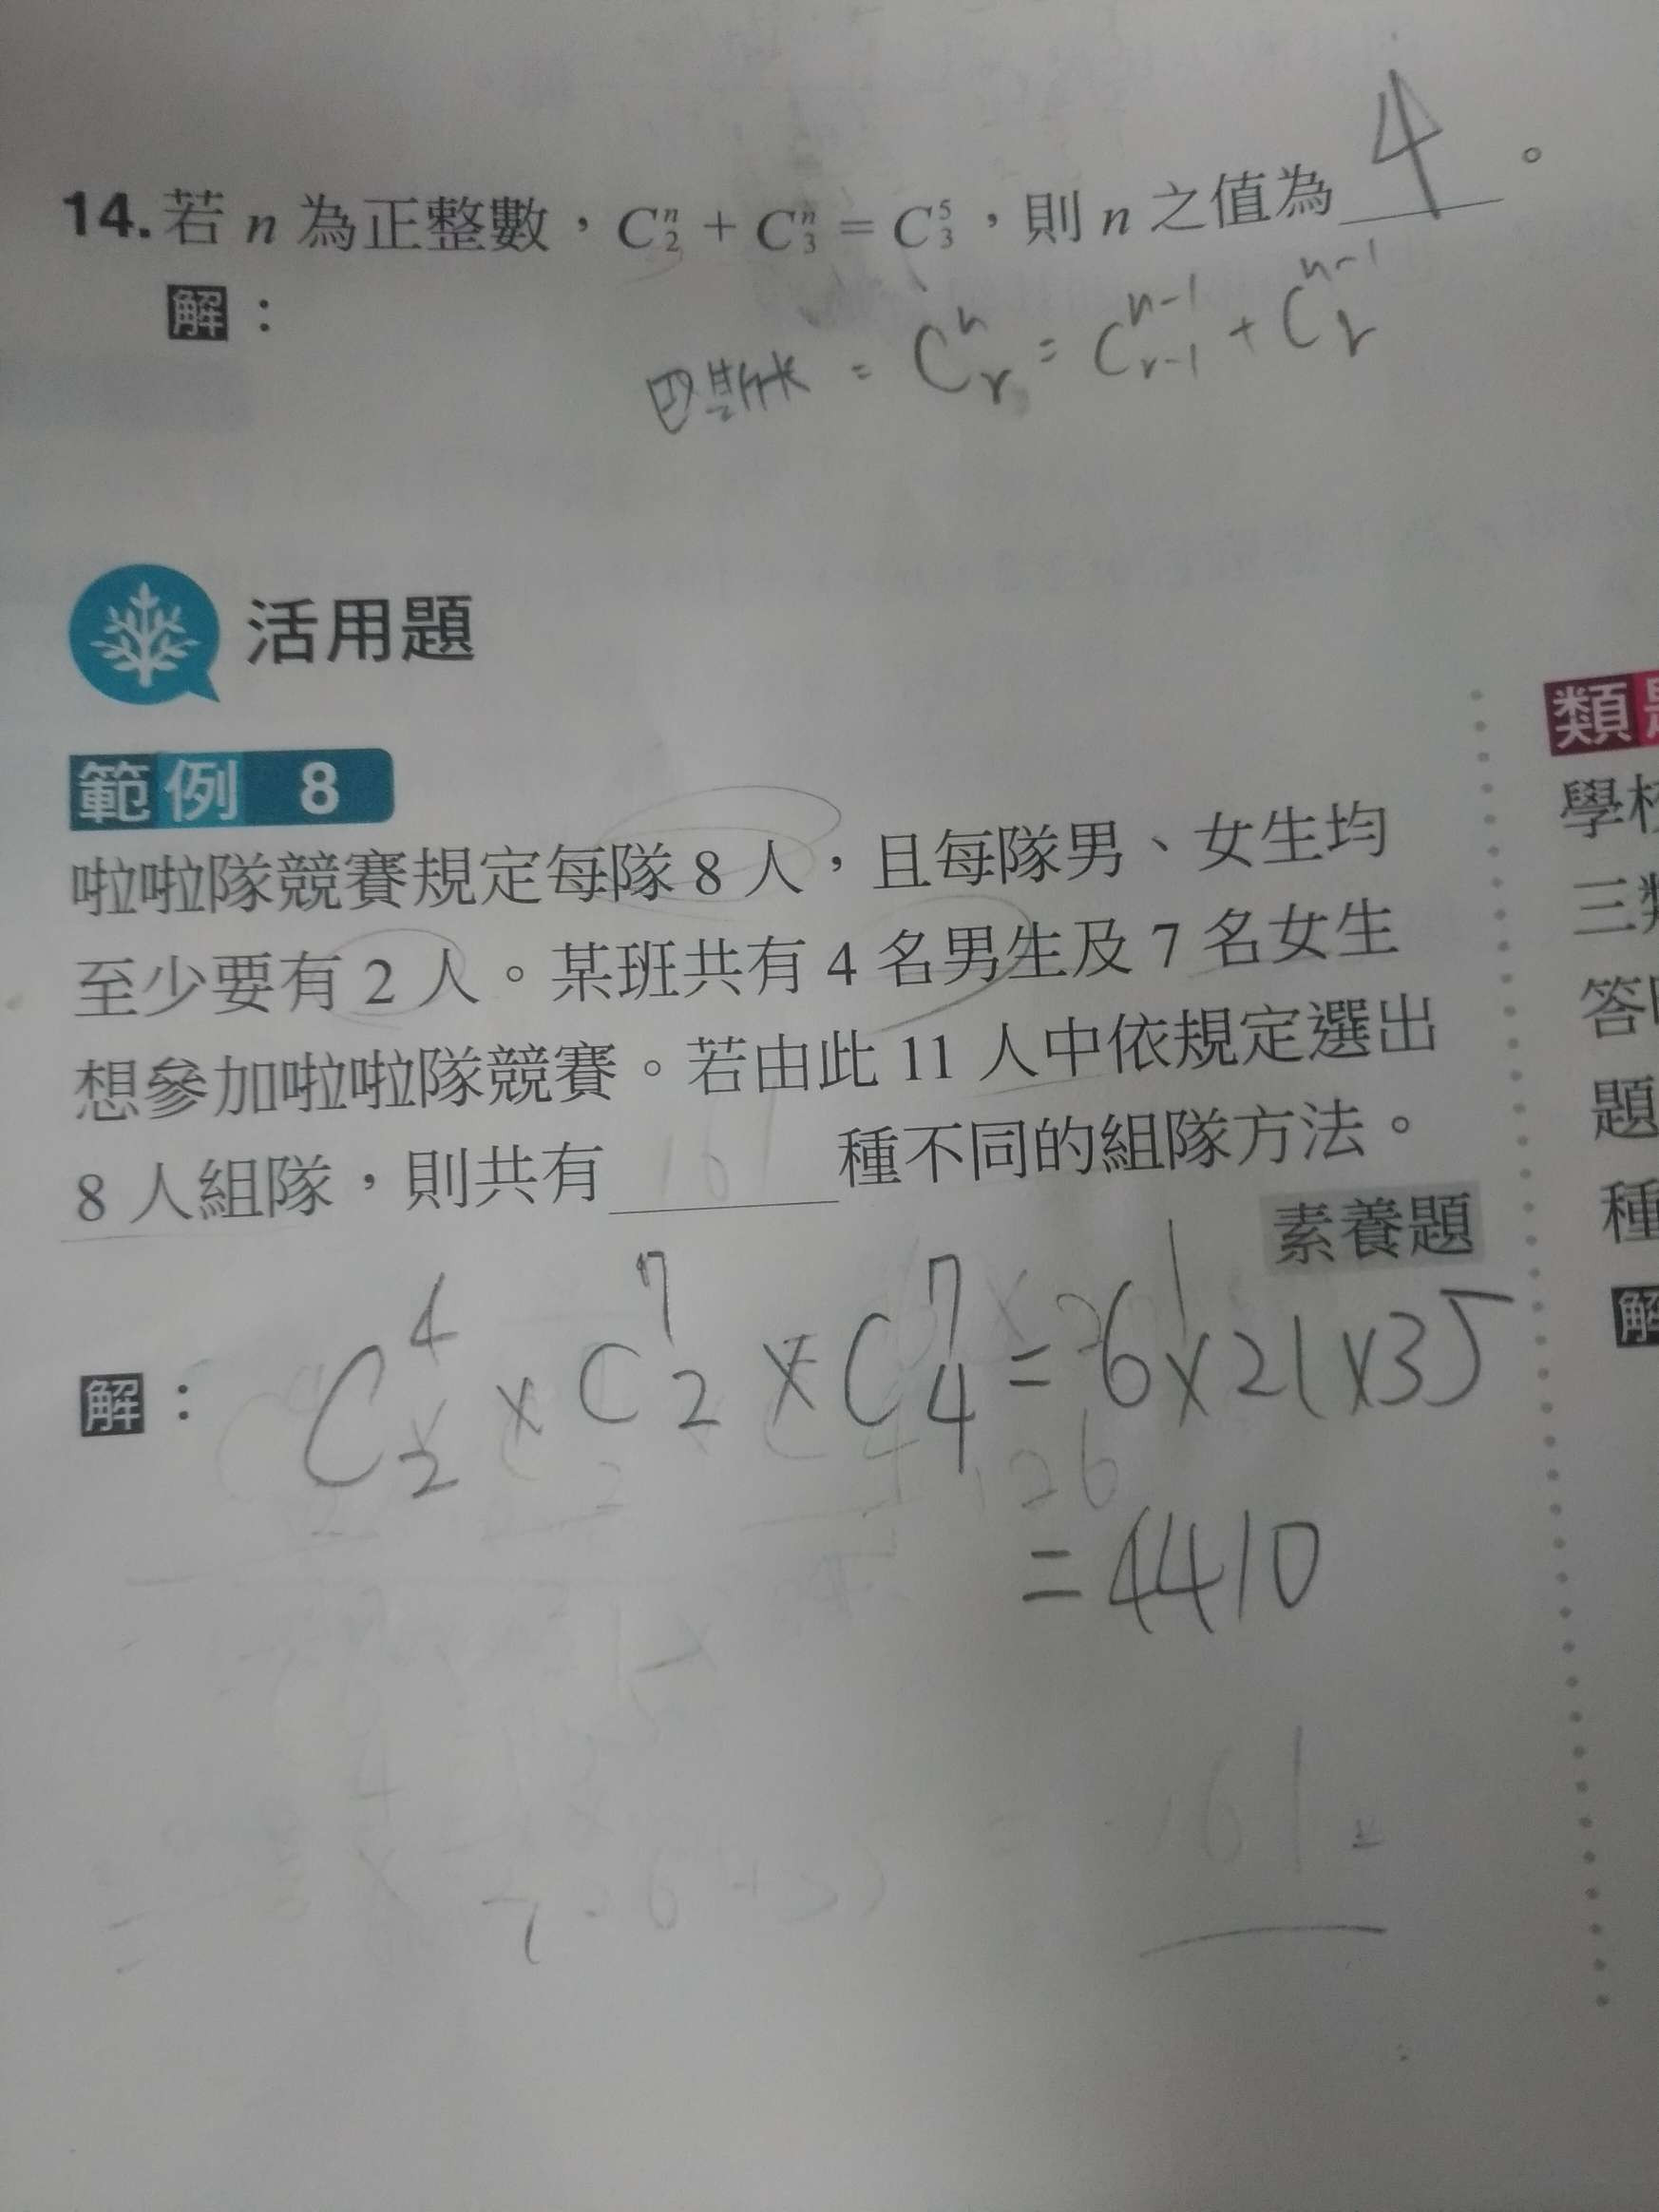 14. 若 n 為正整數，C₂ⁿ + C₃ⁿ = C₃⁵，則 n 之值為 4 。
解：
巴斯卡 = Cᵣⁿ = Cᵣ₋₁ⁿ⁻¹ + Cᵣⁿ⁻¹
活用題
範例 8
啦啦隊競賽規定每隊 8 人，且每隊男、女生均
至少要有 2 人。某班共有 4 名男生及 7 名女生
想參加啦啦隊競賽。若由此 11 人中依規定選出
8 人組隊，則共有 161 種不同的組隊方法。
素養題
解： C₂⁴ × C₂⁷ × C₄⁷ = 6×21×35
= 4410
161
類
學校
三類
答
題
種
解